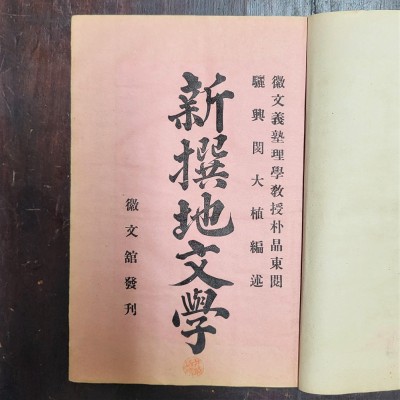 徽文義塾理學教授朴晶東閱
驪興閔大植編述
新撰地文學
徽文館發刊